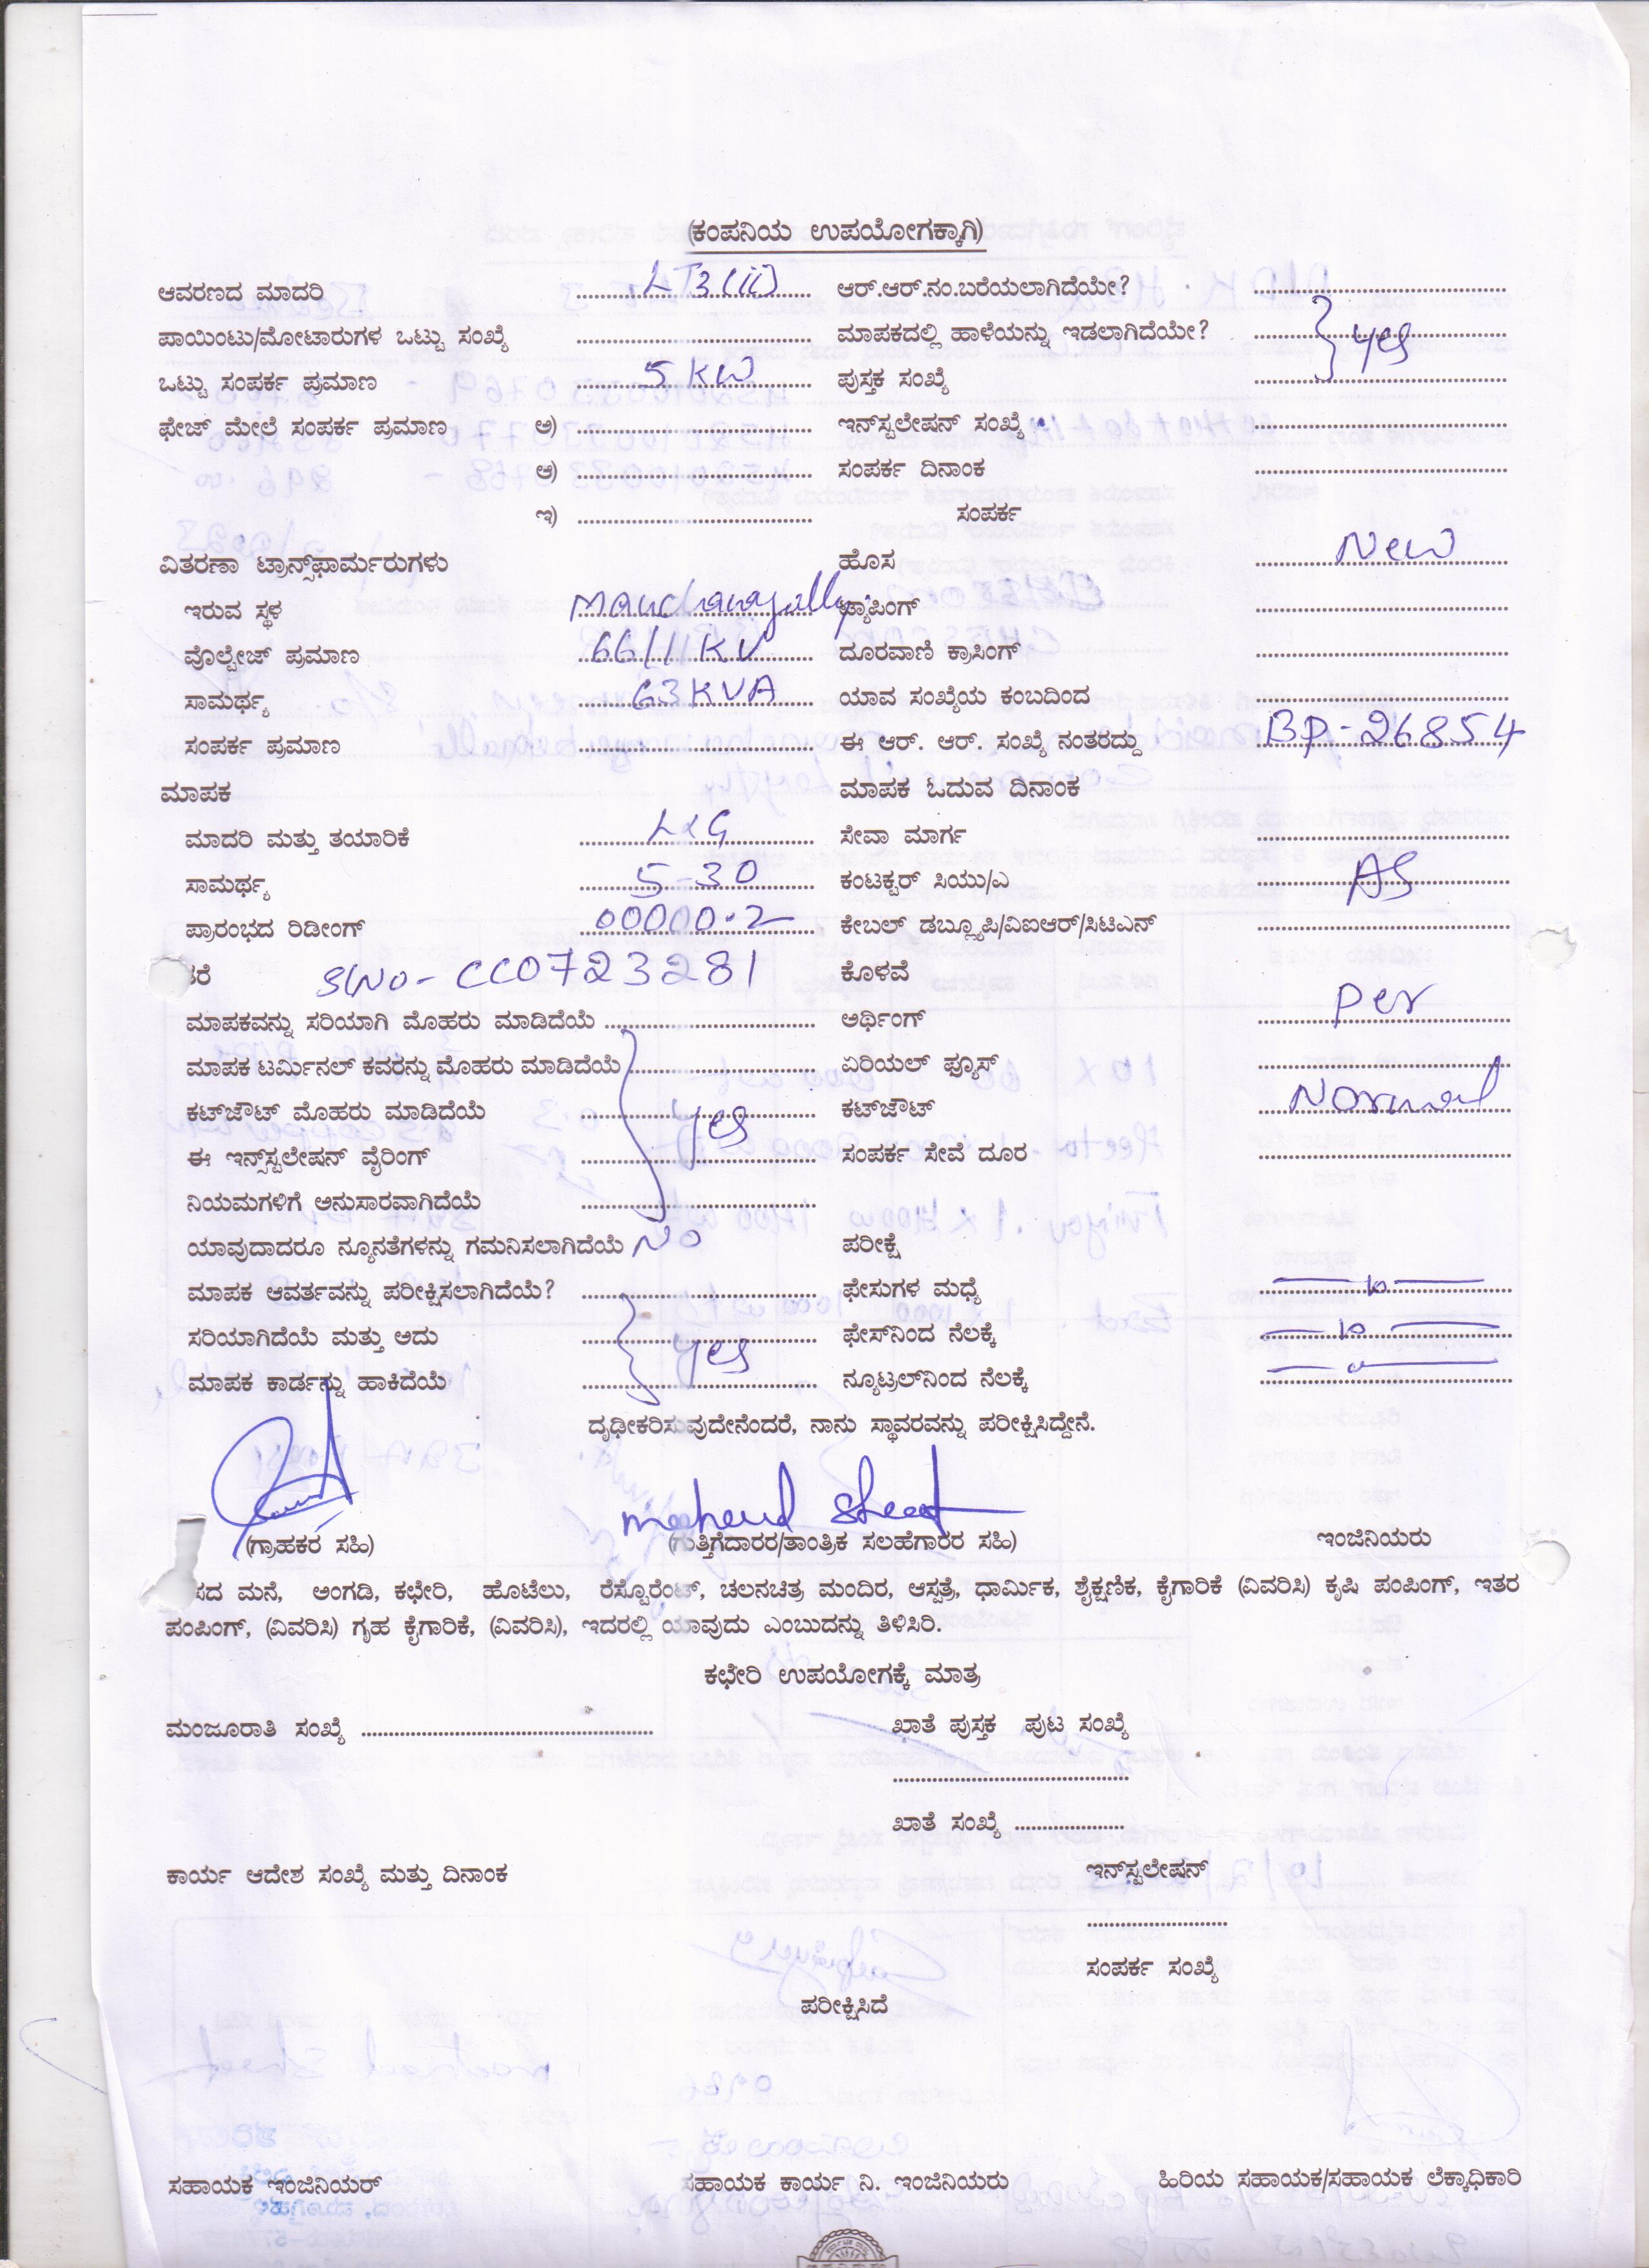 (ಕಂಪನಿಯ ಉಪಯೋಗಕ್ಕಾಗಿ)
ಆವರಣದ ಮಾದರಿ LT3(ii) ಆರ್.ಆರ್.ನಂ.ಬರೆಯಲಾಗಿದೆಯೇ?
ಪಾಯಿಂಟು/ಮೋಟಾರುಗಳ ಒಟ್ಟು ಸಂಖ್ಯೆ ಮಾಪಕದಲ್ಲಿ ಹಾಳೆಯನ್ನು ಇಡಲಾಗಿದೆಯೇ? yes
ಒಟ್ಟು ಸಂಪರ್ಕ ಪ್ರಮಾಣ 5 KW ಪುಸ್ತಕ ಸಂಖ್ಯೆ
ಫೇಜ್ ಮೇಲೆ ಸಂಪರ್ಕ ಪ್ರಮಾಣ ಅ) ಇನ್‌ಸ್ಟಲೇಷನ್ ಸಂಖ್ಯೆ
ಆ) ಸಂಪರ್ಕ ದಿನಾಂಕ
ಇ) ಸಂಪರ್ಕ
ವಿತರಣಾ ಟ್ರಾನ್ಸ್‌ಫಾರ್ಮರುಗಳು ಹೊಸ New
ಇರುವ ಸ್ಥಳ ಟ್ಯಾಪಿಂಗ್
ವೊಲ್ಟೇಜ್ ಪ್ರಮಾಣ 66/11 KV ದೂರವಾಣಿ ಕ್ರಾಸಿಂಗ್
ಸಾಮರ್ಥ್ಯ 63 KVA ಯಾವ ಸಂಖ್ಯೆಯ ಕಂಬದಿಂದ
ಸಂಪರ್ಕ ಪ್ರಮಾಣ ಈ ಆರ್. ಆರ್. ಸಂಖ್ಯೆ ನಂತರದ್ದು BP-26854
ಮಾಪಕ ಮಾಪಕ ಓದುವ ದಿನಾಂಕ
ಮಾದರಿ ಮತ್ತು ತಯಾರಿಕೆ L&G ಸೇವಾ ಮಾರ್ಗ
ಸಾಮರ್ಥ್ಯ 5-30 ಕಂಟಕ್ಟರ್ ಸಿಯು/ಎ AS
ಪ್ರಾರಂಭದ ರಿಡೀಂಗ್ 00000.2 ಕೇಬಲ್ ಡಬ್ಲ್ಯೂಪಿ/ವಿಐಆರ್/ಸಿಟಿಎನ್
ತರೆ Sl No - CC0723281 ಕೊಳವೆ
ಮಾಪಕವನ್ನು ಸರಿಯಾಗಿ ಮೊಹರು ಮಾಡಿದೆಯೆ ಅರ್ಥಿಂಗ್ per
ಮಾಪಕ ಟರ್ಮಿನಲ್ ಕವರನ್ನು ಮೊಹರು ಮಾಡಿದೆಯೆ ಏರಿಯಲ್ ಫ್ಯೂಸ್
ಕಟ್‌ಜೌಟ್ ಮೊಹರು ಮಾಡಿದೆಯೆ yes ಕಟ್‌ಜೌಟ್ Normal
ಈ ಇನ್ಸ್‌ಸ್ಟಲೇಷನ್ ವೈರಿಂಗ್ ಸಂಪರ್ಕ ಸೇವೆ ದೂರ
ನಿಯಮಗಳಿಗೆ ಅನುಸಾರವಾಗಿದೆಯೆ
ಯಾವುದಾದರೂ ನ್ಯೂನತೆಗಳನ್ನು ಗಮನಿಸಲಾಗಿದೆಯೆ No ಪರೀಕ್ಷೆ
ಮಾಪಕ ಆವರ್ತವನ್ನು ಪರೀಕ್ಷಿಸಲಾಗಿದೆಯೆ? ಫೇಸುಗಳ ಮಧ್ಯೆ
ಸರಿಯಾಗಿದೆಯೆ ಮತ್ತು ಅದು yes ಫೇಸ್‌ನಿಂದ ನೆಲಕ್ಕೆ
ಮಾಪಕ ಕಾರ್ಡನ್ನು ಹಾಕಿದೆಯೆ ನ್ಯೂಟ್ರಲ್‌ನಿಂದ ನೆಲಕ್ಕೆ
ದೃಢೀಕರಿಸುವುದೇನೆಂದರೆ, ನಾನು ಸ್ಥಾವರವನ್ನು ಪರೀಕ್ಷಿಸಿದ್ದೇನೆ.
(ಗ್ರಾಹಕರ ಸಹಿ) (ಗುತ್ತಿಗೆದಾರರ/ತಾಂತ್ರಿಕ ಸಲಹೆಗಾರರ ಸಹಿ) ಇಂಜಿನಿಯರು
ಸದ ಮನೆ, ಅಂಗಡಿ, ಕಛೇರಿ, ಹೊಟೆಲು, ರೆಸ್ಟೊರೆಂಟ್, ಚಲನಚಿತ್ರ ಮಂದಿರ, ಆಸ್ಪತ್ರೆ, ಧಾರ್ಮಿಕ, ಶೈಕ್ಷಣಿಕ, ಕೈಗಾರಿಕೆ (ವಿವರಿಸಿ) ಕೃಷಿ ಪಂಪಿಂಗ್, ಇತರ
ಪಂಪಿಂಗ್, (ವಿವರಿಸಿ) ಗೃಹ ಕೈಗಾರಿಕೆ, (ವಿವರಿಸಿ), ಇದರಲ್ಲಿ ಯಾವುದು ಎಂಬುದನ್ನು ತಿಳಿಸಿರಿ.
ಕಛೇರಿ ಉಪಯೋಗಕ್ಕೆ ಮಾತ್ರ
ಮಂಜೂರಾತಿ ಸಂಖ್ಯೆ ಖಾತೆ ಪುಸ್ತಕ ಪುಟ ಸಂಖ್ಯೆ
ಖಾತೆ ಸಂಖ್ಯೆ
ಕಾರ್ಯ ಆದೇಶ ಸಂಖ್ಯೆ ಮತ್ತು ದಿನಾಂಕ ಇನ್‌ಸ್ಟಲೇಷನ್
ಸಂಪರ್ಕ ಸಂಖ್ಯೆ
ಪರೀಕ್ಷಿಸಿದೆ
ಸಹಾಯಕ ಇಂಜಿನಿಯರ್ ಸಹಾಯಕ ಕಾರ್ಯ ನಿ. ಇಂಜಿನಿಯರು ಹಿರಿಯ ಸಹಾಯಕ/ಸಹಾಯಕ ಲೆಕ್ಕಾಧಿಕಾರಿ